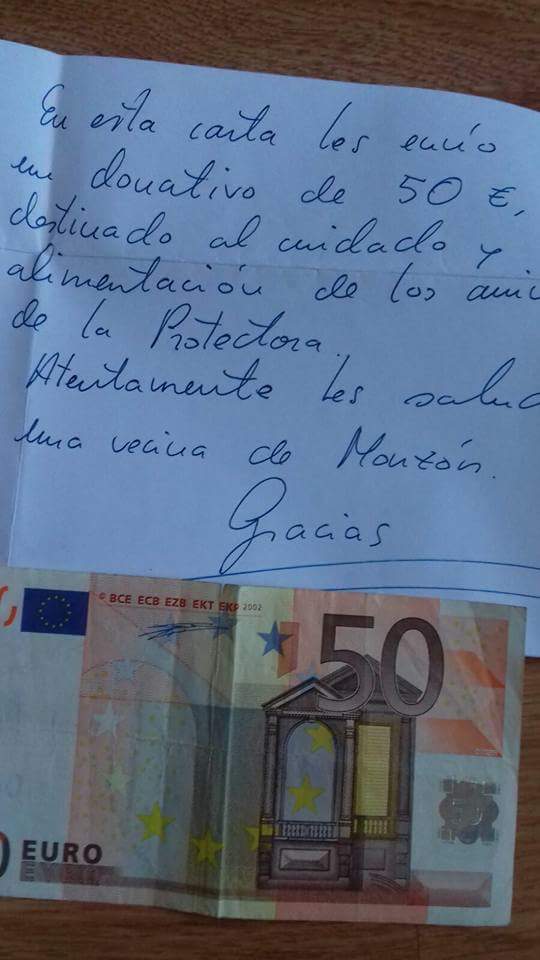 En esta carta les envío
un donativo de 50 €,
destinado al cuidado y
alimentación de los
de la Protectora.
Atentamente les
una vecina de Monzón.
Gracias
© BCE ECB EZB EKT EKP 2002
50
EURO
ΕΥΡΩ